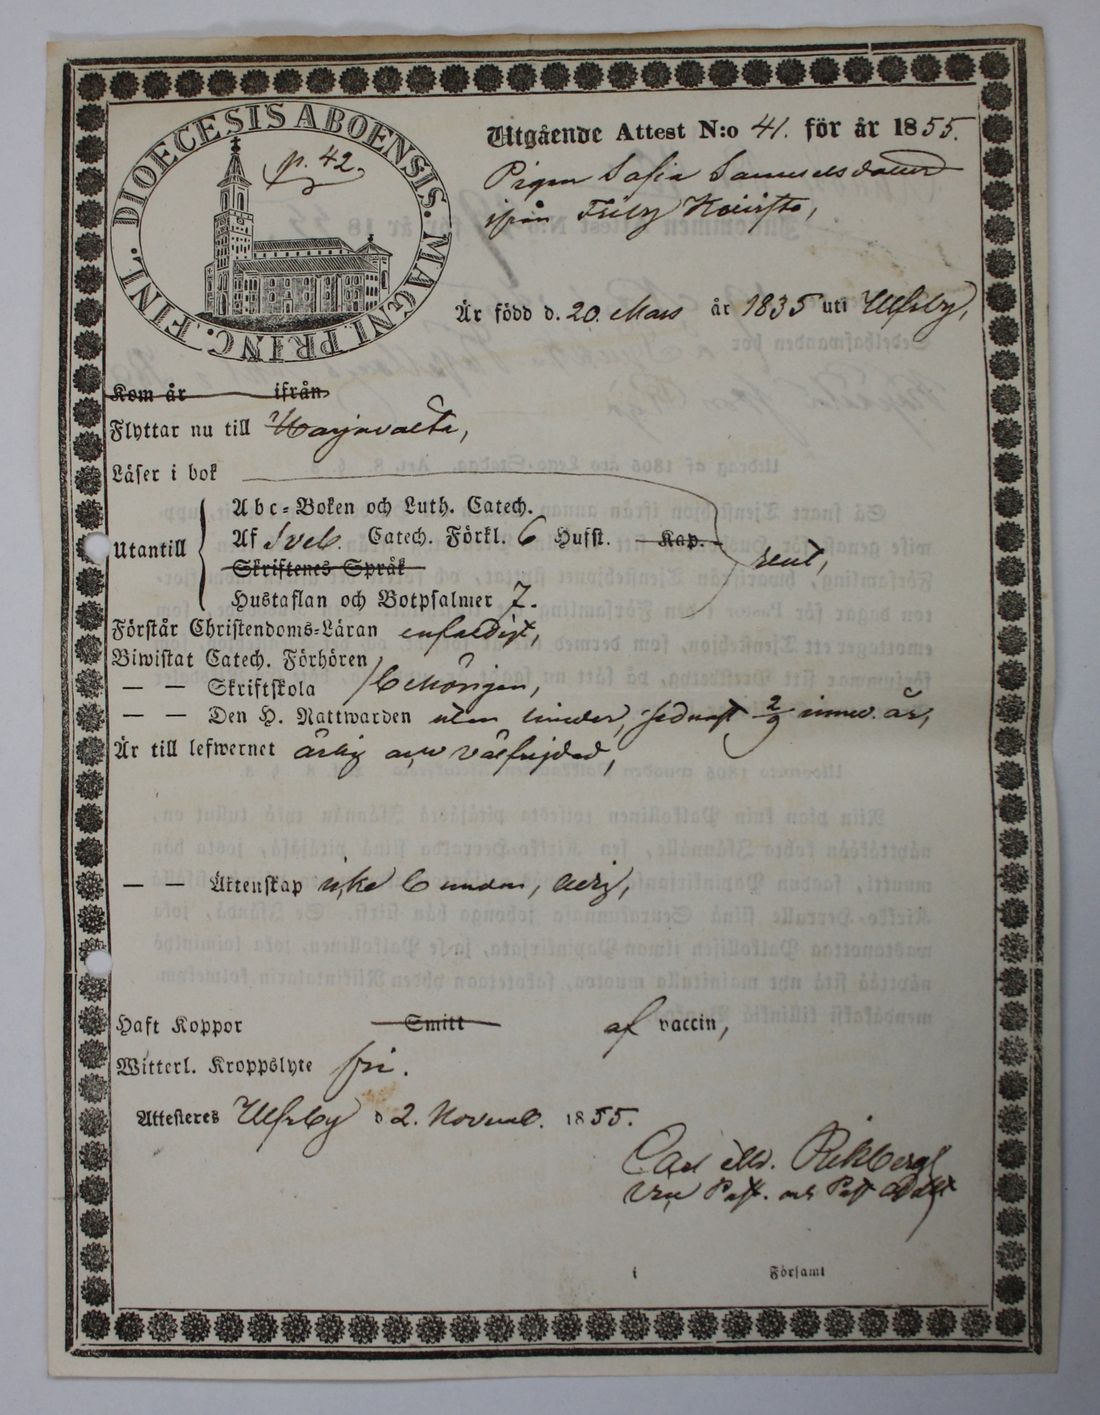 DIOECESIS ABOENSIS. MAGNI. PRINC. FINL.
p. 42.
Utgående Attest N:o 41. för år 1855.
Pigan Sofia Samuelsdotter
ifrån
Är född d. 20. Mars år 1835 uti Ulfsby,
Kom år ifrån
Flyttar nu till Harjavalta,
Läser i bok
Utantill
Abc-Boken och Luth. Catech.
Af Sveb. Catech. Förkl. 6 Hufst. Kap.
rent,
Skriftenes Språk
Hustaflan och Botpsalmer 7.
Förstår Christendoms-Läran enfaldigt,
Biwistat Catech. Förhören
— — Skriftskola behörigen,
— — Den H. Nattwarden utan hinder, sednast 2/9 innev. år,
Är till lefwernet ärlig och välfrejdad,
— — Äktenskap icke bunden, ledig,
Haft Koppor Smitt af vaccin,
Witterl. Kroppslyte fri.
Attesteres Ulfsby d 2. Novemb. 1855.
Carl
Past. och
i Församl